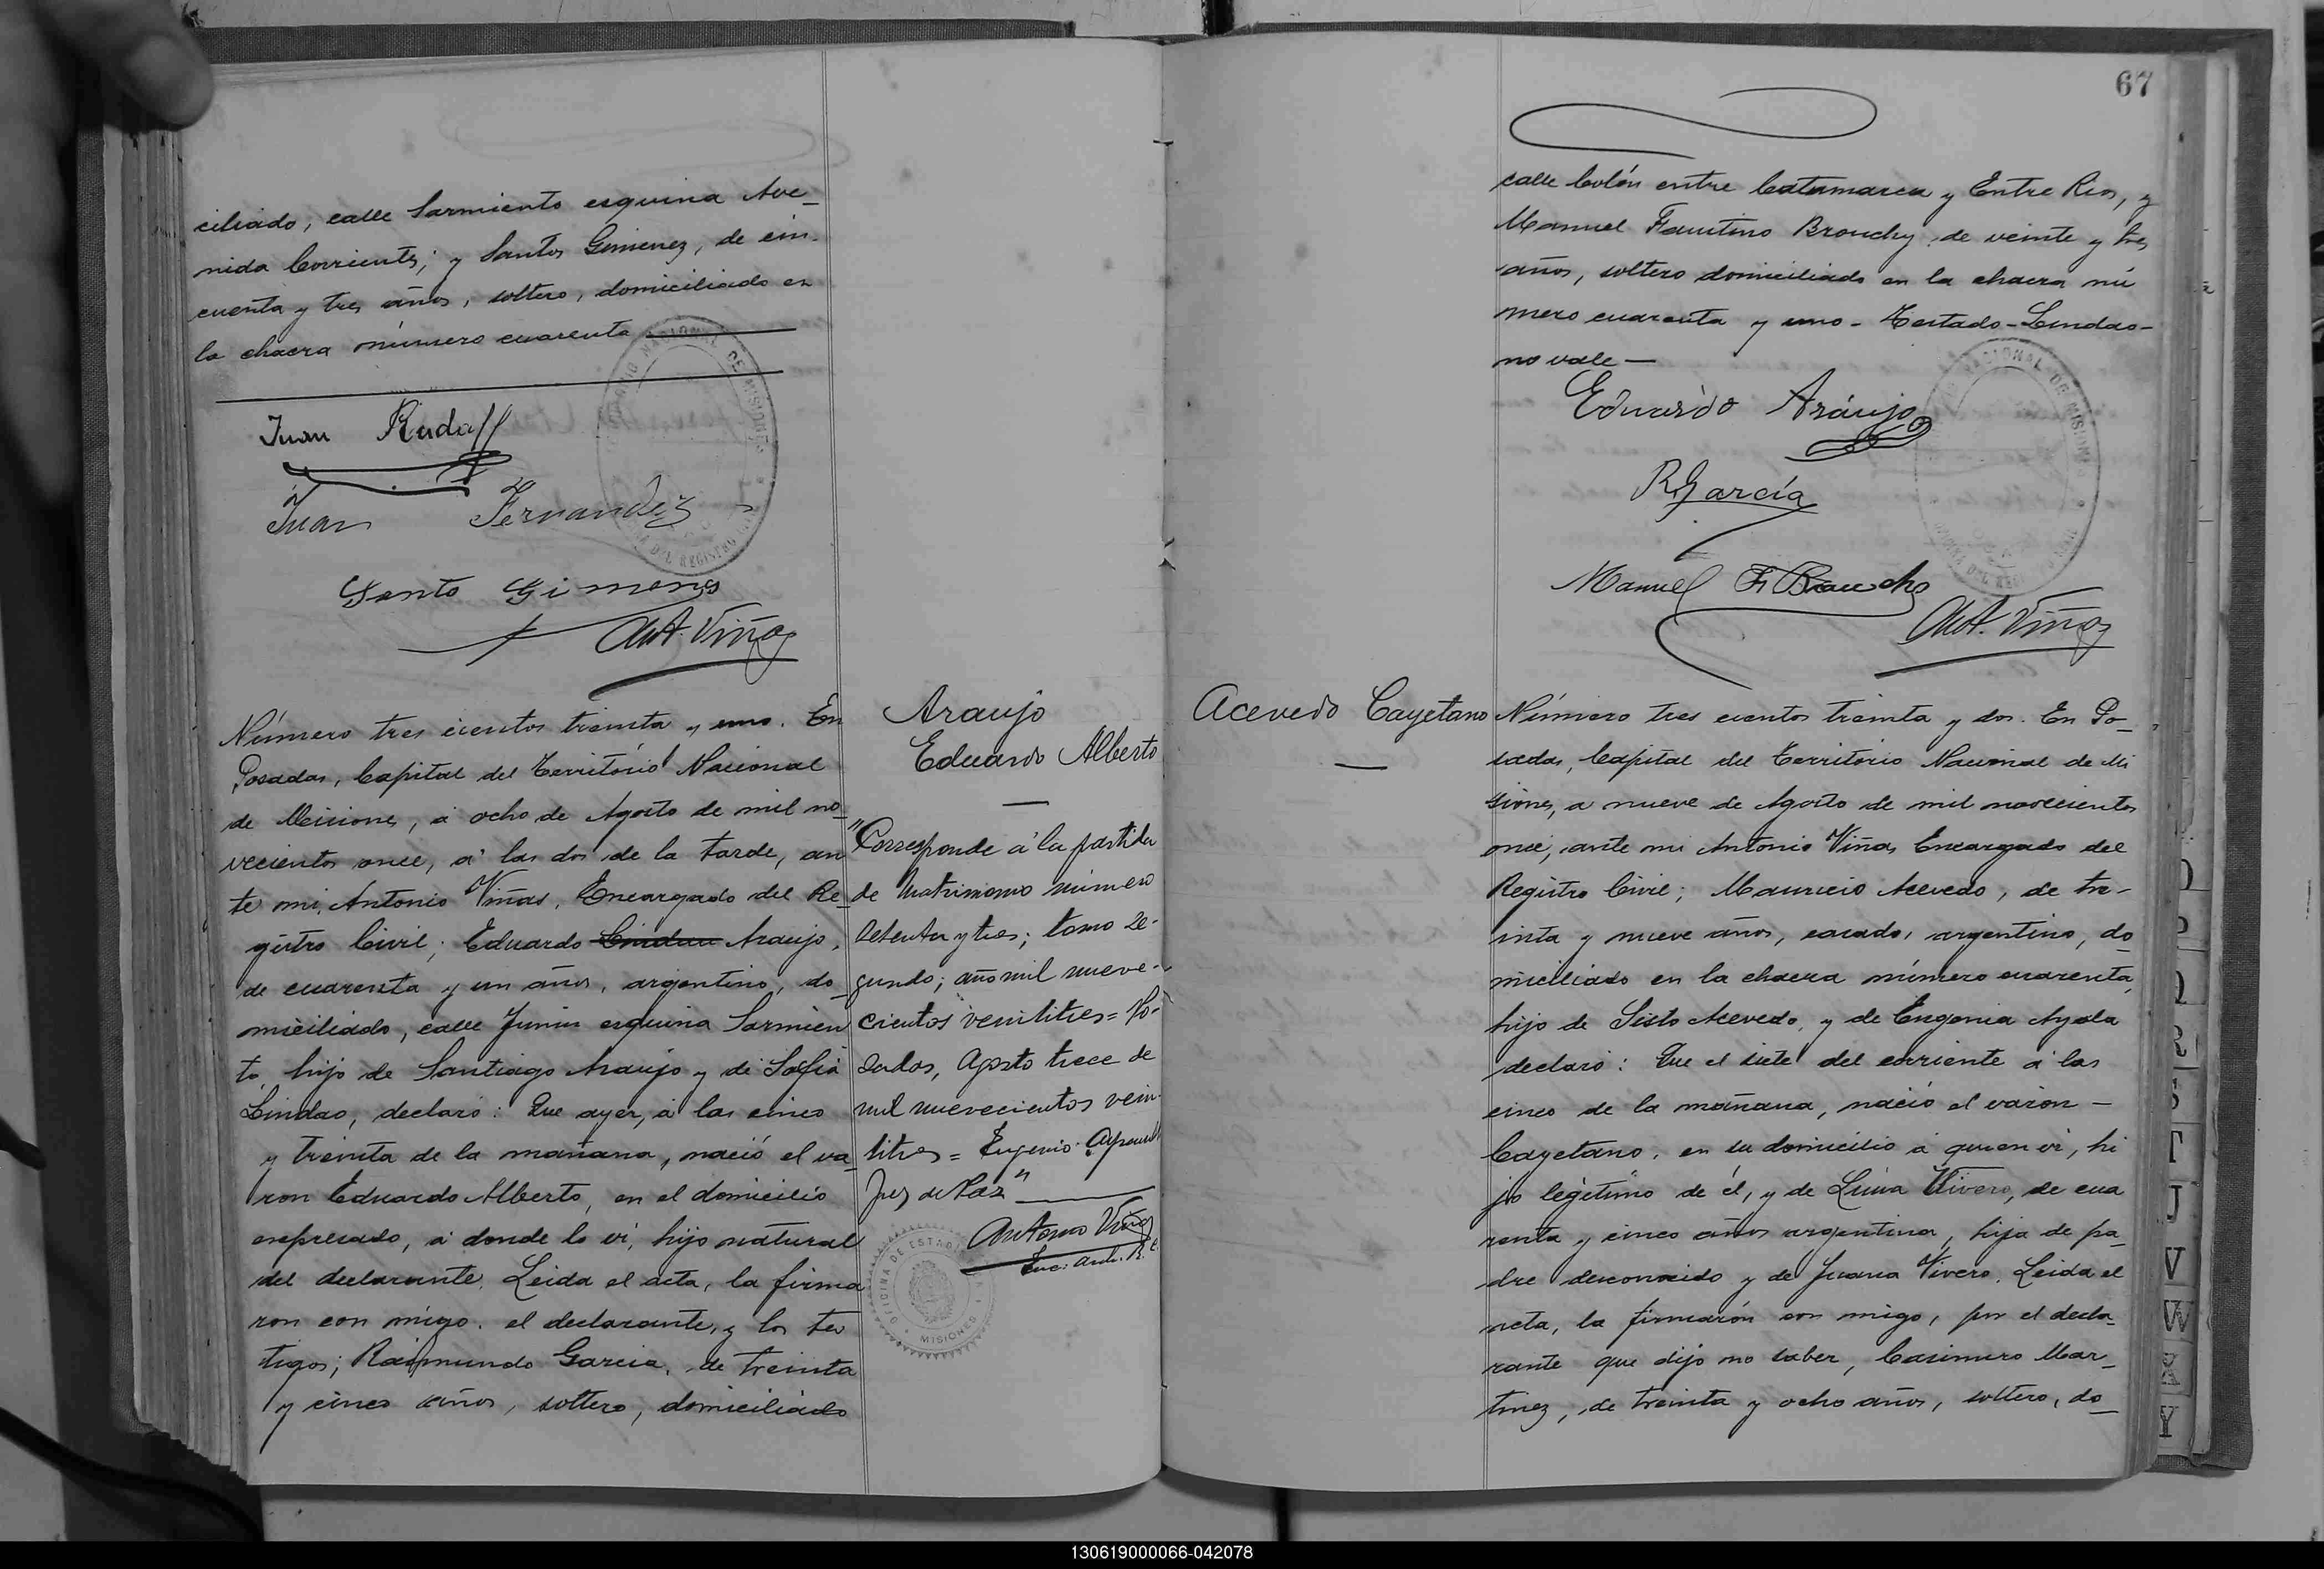 ciliado, calle Sarmiento esquina Ave_
nida Corrientes; y Santos Gimenez, de cin_
cuenta y tres años, soltero, domiciliado en
la chacra número cuarenta
Juan Rudaff
Juan Fernandez
Santo Gimenes
Ant. Viñas
Número tres cientos treinta y uno. En
Posadas, Capital del Territorio Nacional
de Misiones, á ocho de Agosto de mil no_
vecientos once, á las dos de la tarde, an
te mi, Antonio Viñas, Encargado del Re_
gistro Civil; Eduardo Lindau Araujo,
de cuarenta y un años, argentino, do_
miciliado, calle Junin esquina Sarmien
to, hijo de Santiago Araujo y de Sofia
Lindao, declaró: Que ayer, á las cinco
y treinta de la mañana, nació el va_
ron Eduardo Alberto, en el domicilio
expresado, á donde lo vi, hijo natural
del declarante. Leida el acta, la firma
ron con migo, el declarante, y los tes
tigos; Raimundo Garcia, de treinta
y cinco años, soltero, domiciliado
Araujo
Eduardo Alberto
"Corresponde á la partida
de Matrimonio número
setenta y tres; tomo se-
gundo; año mil nueve-
cientos veintitres = Po-
sadas, Agosto trece de
mil nuevecientos vein-
titres = Eugenio
Juez de Paz"
Antonio Viñas
Enc. Arch. R. C.
OFICINA DE ESTADI
MISIONES
67
calle Colón entre Catamarca y Entre Rios, y
Manuel Faustino Brouchy, de veinte y tres
años, soltero domiciliado en la chacra nú
mero cuarenta y uno - Testado - Lindao -
no vale —
Eduardo Aráujo
R García
Manuel F. Brouchy
Ant. Viñas
Acevedo Cayetano
Número tres cientos treinta y dos. En Po_
sadas, Capital del Territorio Nacional de Mi
siones, a nueve de Agosto de mil novecientos
once, ante mi Antonio Viñas Encargado del
Registro Civil; Mauricio Acevedo, de tre-
inta y nueve años, casado, argentino, do_
miciliado en la chacra número cuarenta,
hijo de Sisto Acevedo, y de Eugenia Ayala
declaró: Que el siete del corriente á las
cinco de la mañana, nació el varon —
Cayetano, en su domicilio á quien vi, hi
jo legitimo de él, y de Lucia Vivero, de cua
renta y cinco años argentina, hija de pa_
dre desconocido y de Juana Vivero. Leida el
acta, la firmarón con migo, por el decla_
rante que dijo no saber, Casimero Mar_
tinez, de treinta y ocho años, soltero, do_
O
P
Q
R
S
T
J
V
W
X
Y
130619000066-042078